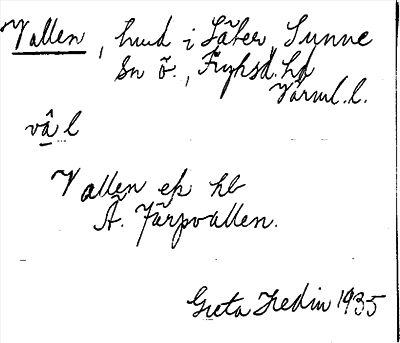 Vallen, hmd i Säter, Sunne
sn ö., Fryksd. hd
Värml. l.
vål
Vallen ek hb
Ä. Järpvallen.
Greta Hedin 1935